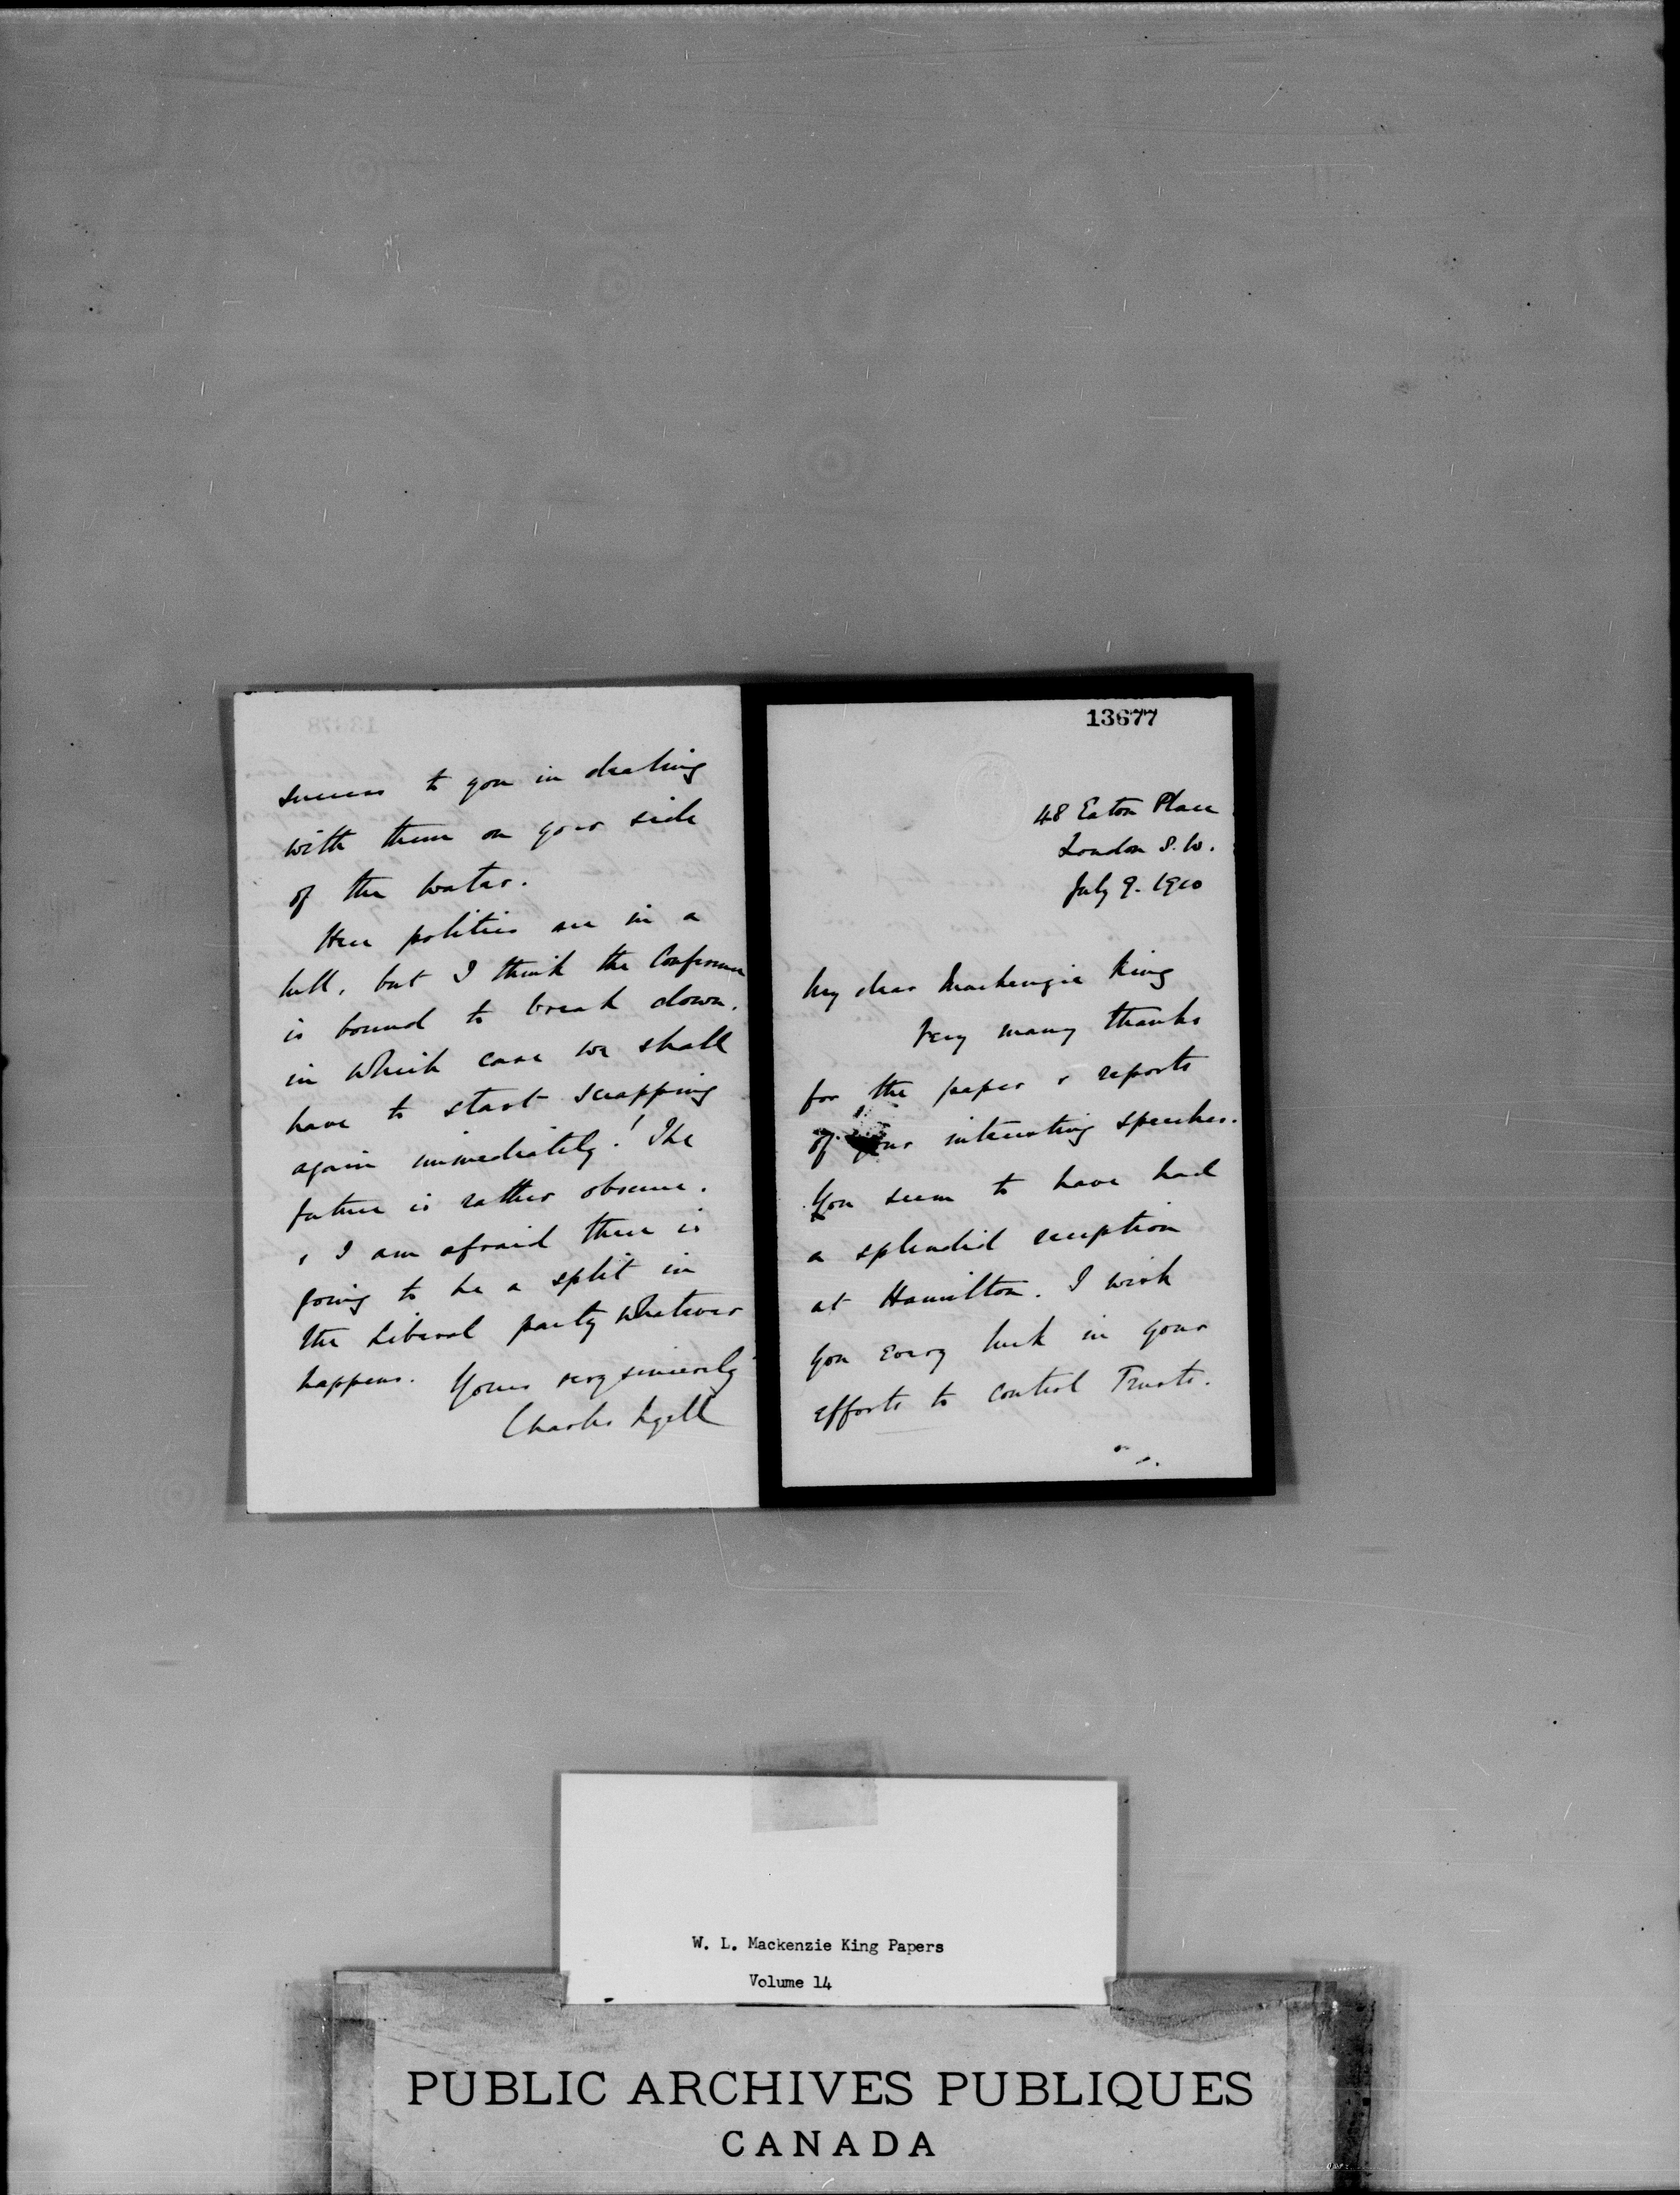 13677
48 Eaton Place
London S.W.
July 9. 1910
My dear Mackenzie King
Very many thanks
for the paper & reports
of your interesting speeches.
You seem to have had
a splendid reception
at Hamilton. I wish
you every luck in your
efforts to control Trusts.
success to you in dealing
with them on your side
of the water.
Here politics are in a
lull, but I think the Conference
is bound to break down.
in which case we shall
have to start scrapping
again immediately! The
future is rather obscure.
& I am afraid there is
going to be a split in
the Liberal party whatever
happens. Yours very sincerely
Charles Lyell
W. L. Mackenzie King Papers
Volume 14
PUBLIC ARCHIVES PUBLIQUES
CANADA